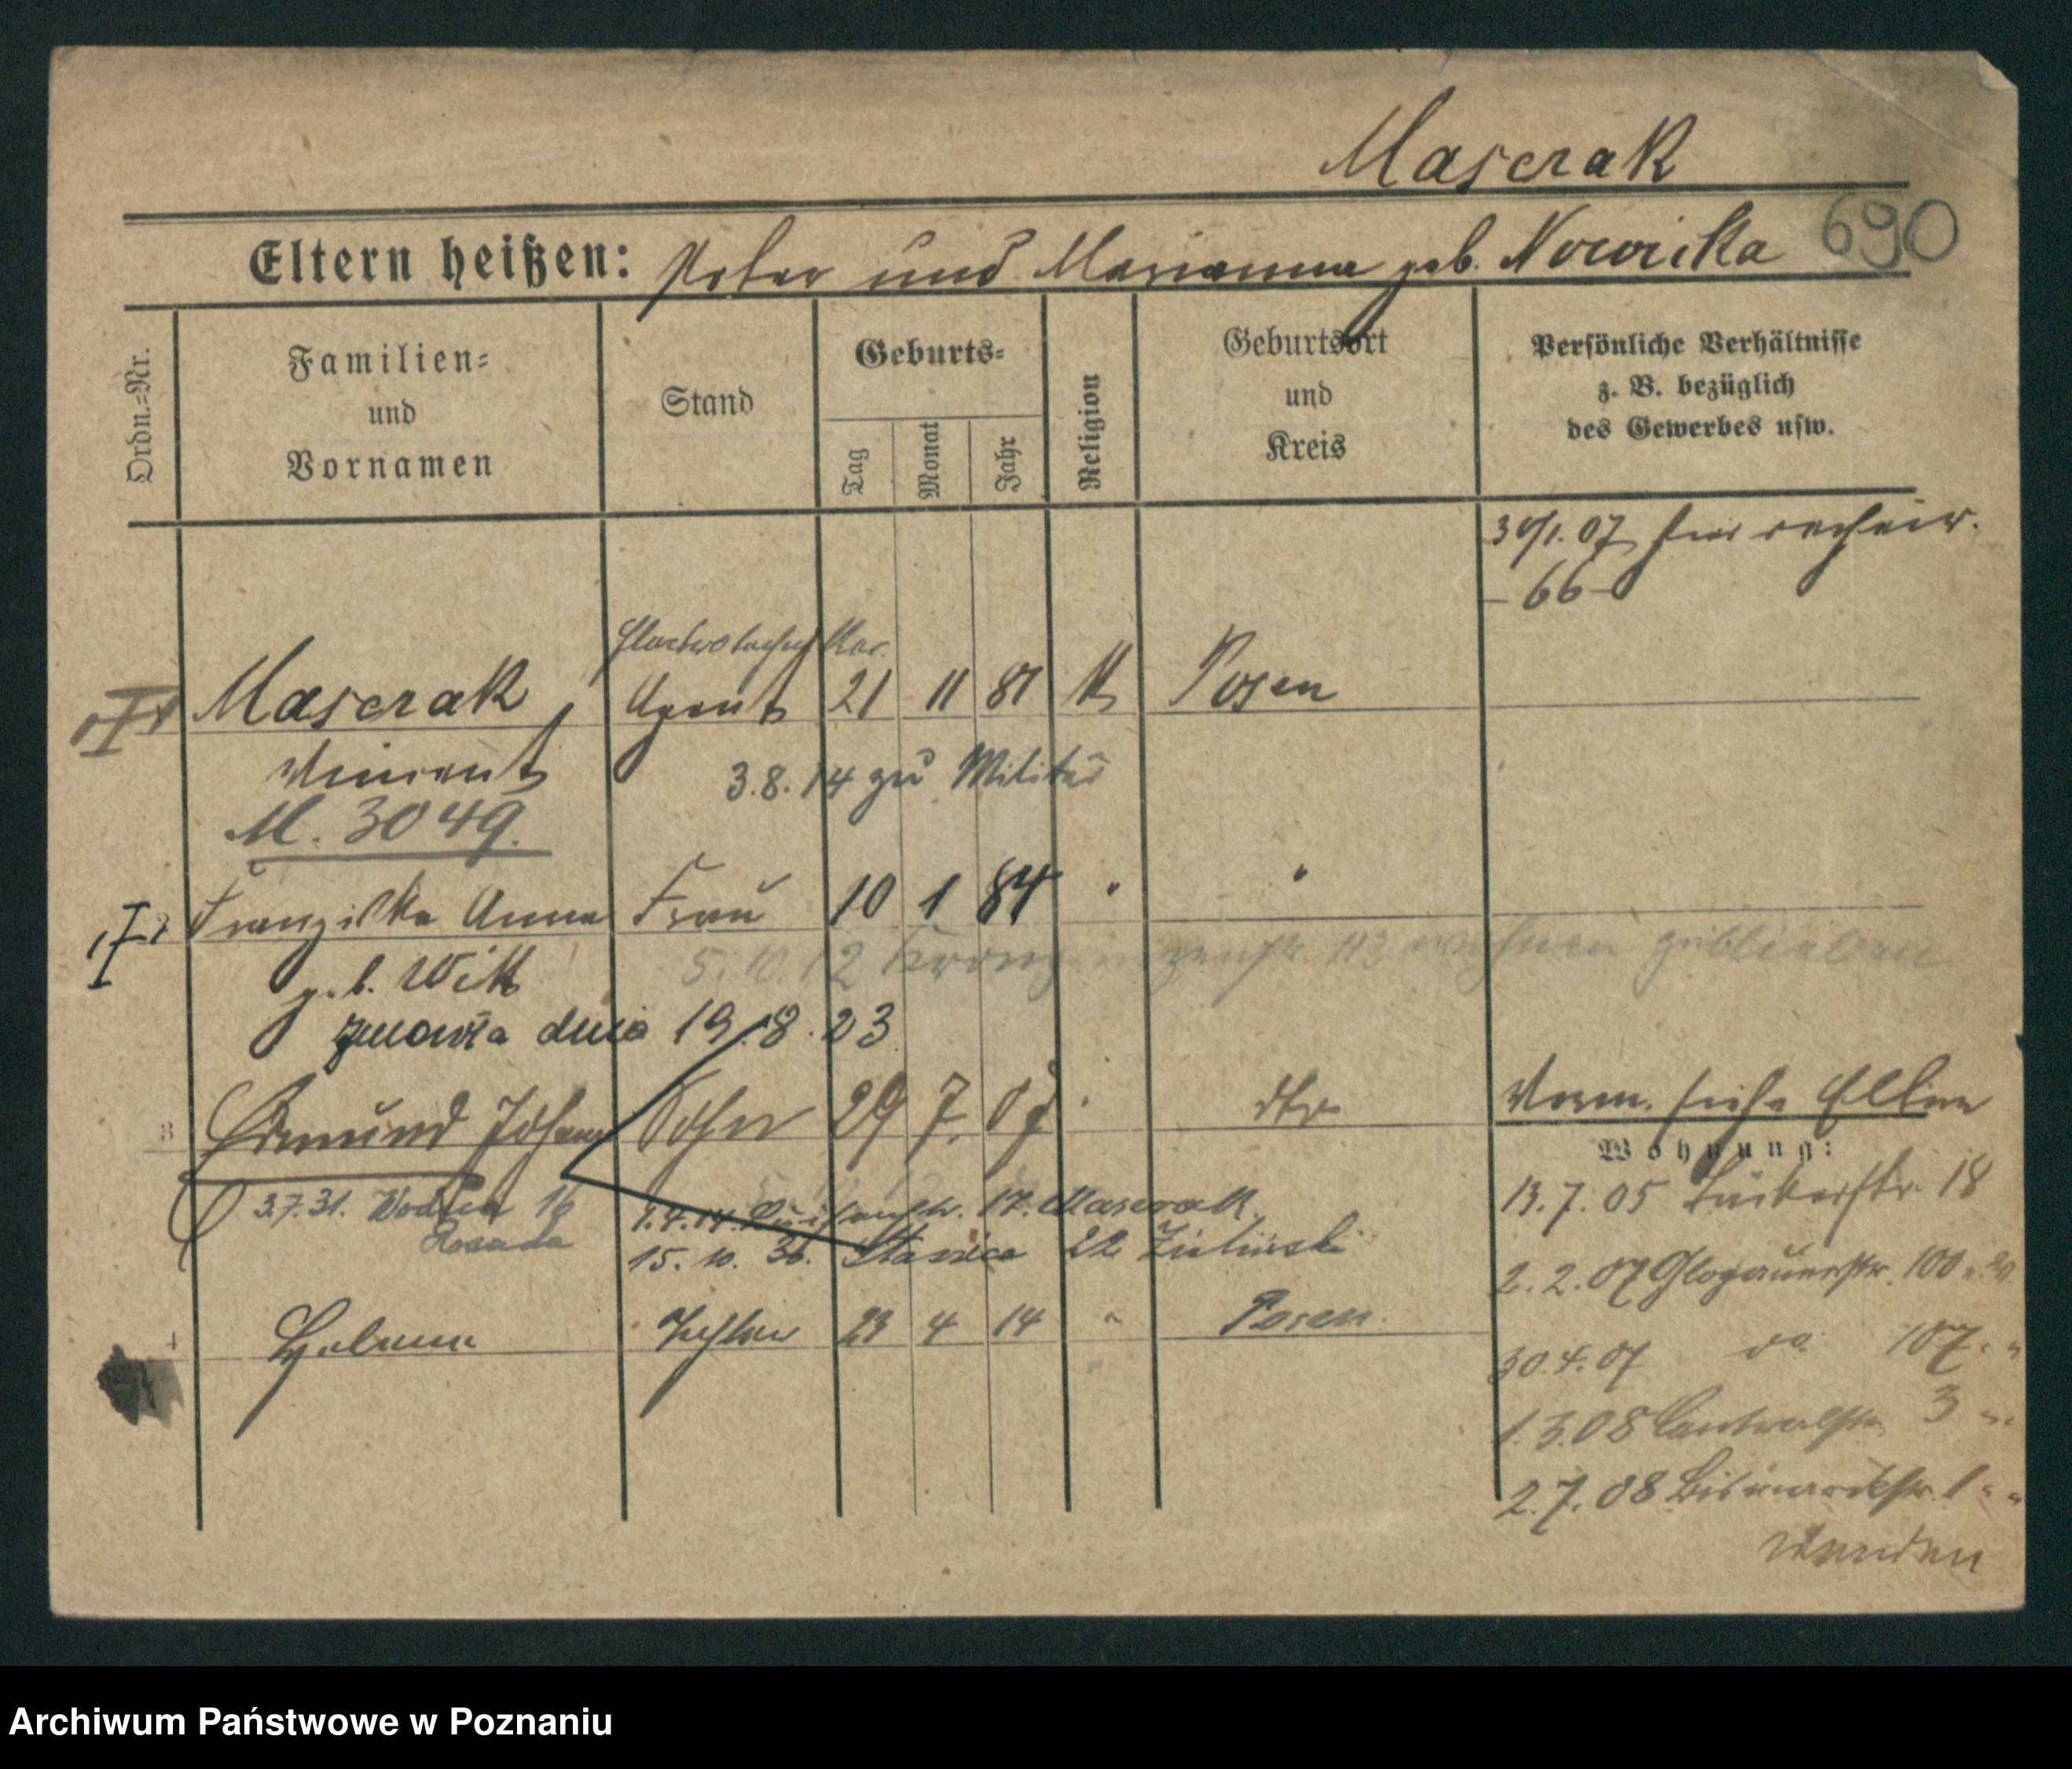 Mascrak
690
Eltern heißen: Peter und Marianna geb. Nowicka
Ordn.=Nr.
Familien=
und
Vornamen
Stand
Geburts=
Tag
Monat
Jahr
Religion
Geburtsort
und
Kreis
Persönliche Verhältnisse
z. B. bezüglich
des Gewerbes usw.
30/1. 07
- 66 -
Mascrak Agent 21 11 81 K Posen
Vincent 3.8.14 zu Militär
M. 3049.
Franziska Anna Frau 10 1 84 " "
geb. Witt 5.10.12
zmarła dnia 19.8.23
3 Edmund Johann Sohn 29 7. 07 " dto Verm. siehe Ellen
Wohnung:
13.7.05 18
3.7.31. 16 1.4.14. 17. Mascrak
15.10.36. 22 Zielinski
2.2.07 Glogauerstr. 100
4 Helena Tochter 23 4 14 " Posen
30.4.07 do 107 "
1.3.08 3 "
2.7.08 Bismarckstr. 1 "
Wenden
Archiwum Państwowe w Poznaniu